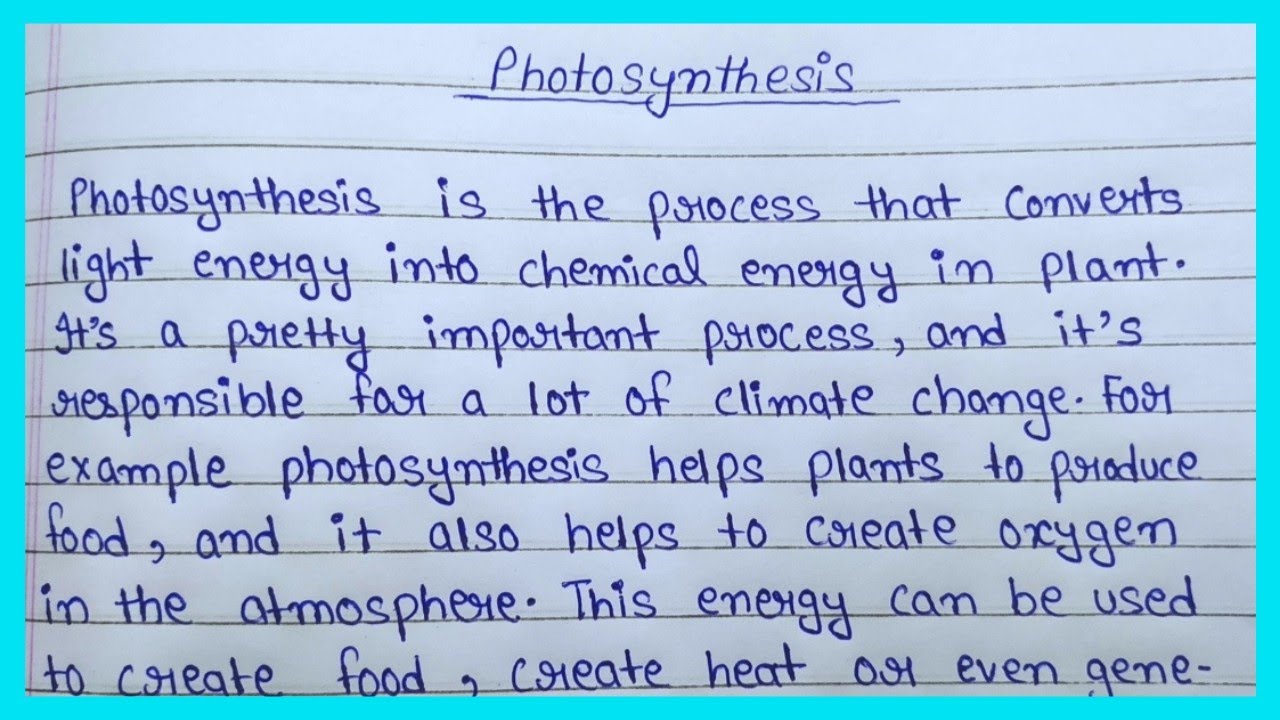 Photosynthesis
Photosynthesis is the process that converts
light energy into chemical energy in plant.
It's a pretty important process, and it's
responsible for a lot of climate change. For
example photosynthesis helps plants to produce
food, and it also helps to create oxygen
in the atmosphere. This energy can be used
to create food, create heat or even gene-